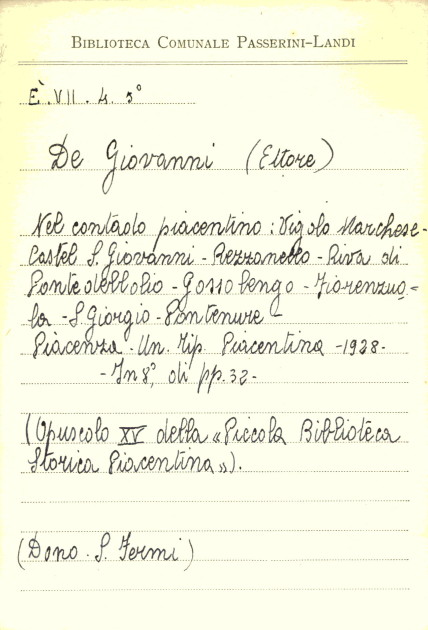 BIBLIOTECA COMUNALE PASSERINI-LANDI
E. VII. 4. 5°
De Giovanni (Ettore)
Nel contado piacentino: Vigolo Marchese-
Castel S. Giovanni - Rezzanello - Riva di
Pontedellolio - Gossolengo - Fiorenzuo=
la - S. Giorgio - Pontenure -
Piacenza - Un. Tip. Piacentina - 1928-
- In 8°, di pp. 32 -
(Opuscolo XV della «Piccola Biblioteca
Storica Piacentina»).
(Dono. S. Fermi)